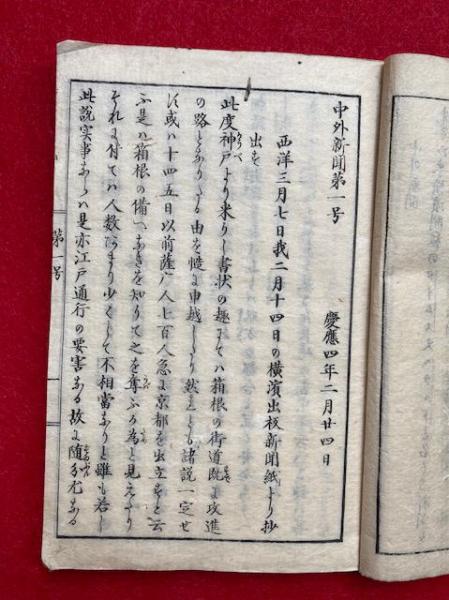 中外新聞第一号
慶應四年二月廿四日
西洋三月七日我二月十四日の横濱出板新聞紙より抄
出を
此度神戸より来りし書状の趣にてハ箱根の街道既に攻進
の路となりたる由を慥に申越したり然れども諸説一定せ
ず或ハ十四五日以前薩广人七百人急に京都を出立すと云
ふ是ハ箱根の備へなきを知りて之を奪ふ為と見えたり
それに付てハ人数あまり少くして不相當なりと雖も若し
此説実事ならハ是亦江戸通行の要害なる故に随分尤なる
第一号